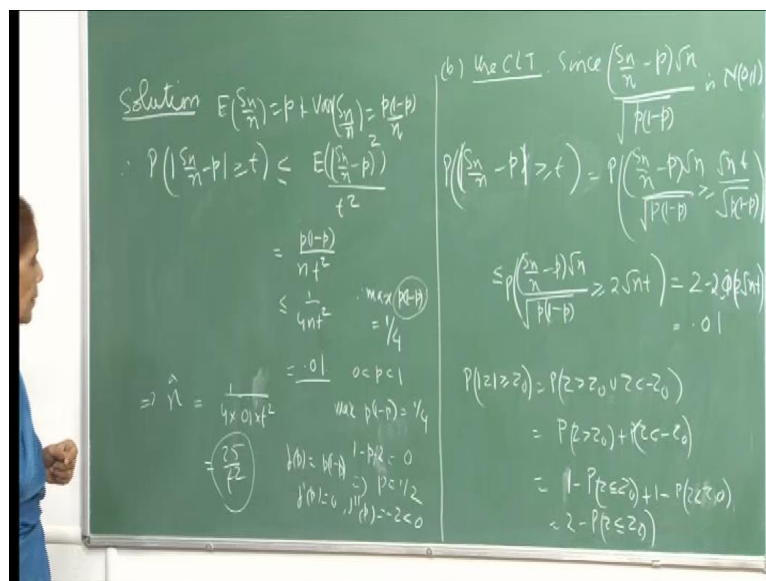 Solution E(Sn/n) = p & Var(Sn/n) = p(1-p)/n
∴ P(|Sn/n - p| ≥ t) ≤ E(|Sn/n - p|)^2 / t^2
= p(1-p) / nt^2
≤ 1 / 4nt^2 ∵ max p(1-p) = 1/4
= .01 0<p<1
⇒ n̂ = 1 / 4×.01×t^2 max p(1-p) = 1/4
= 25/t^2
f(p) = p(1-p) 1-p/2 = 0
f'(p) = 0 ⇒ p = 1/2
f''(p) = -2<0
(b) Use CLT. Since (Sn/n - p)√n / √p(1-p) is N(0,1)
P(|Sn/n - p| ≥ t) = P((Sn/n - p)√n / √p(1-p) ≥ √n t / √p(1-p))
≤ P((Sn/n - p)√n / √p(1-p) ≥ 2√n t) = 2-2Φ(2√n t)
= .01
P(|Z| ≥ Z0) = P(Z > Z0 ∪ Z < -Z0)
= P(Z > Z0) + P(Z < -Z0)
= 1 - P(Z ≤ Z0) + 1 - P(Z ≤ Z0)
= 2 - P(Z ≤ Z0)